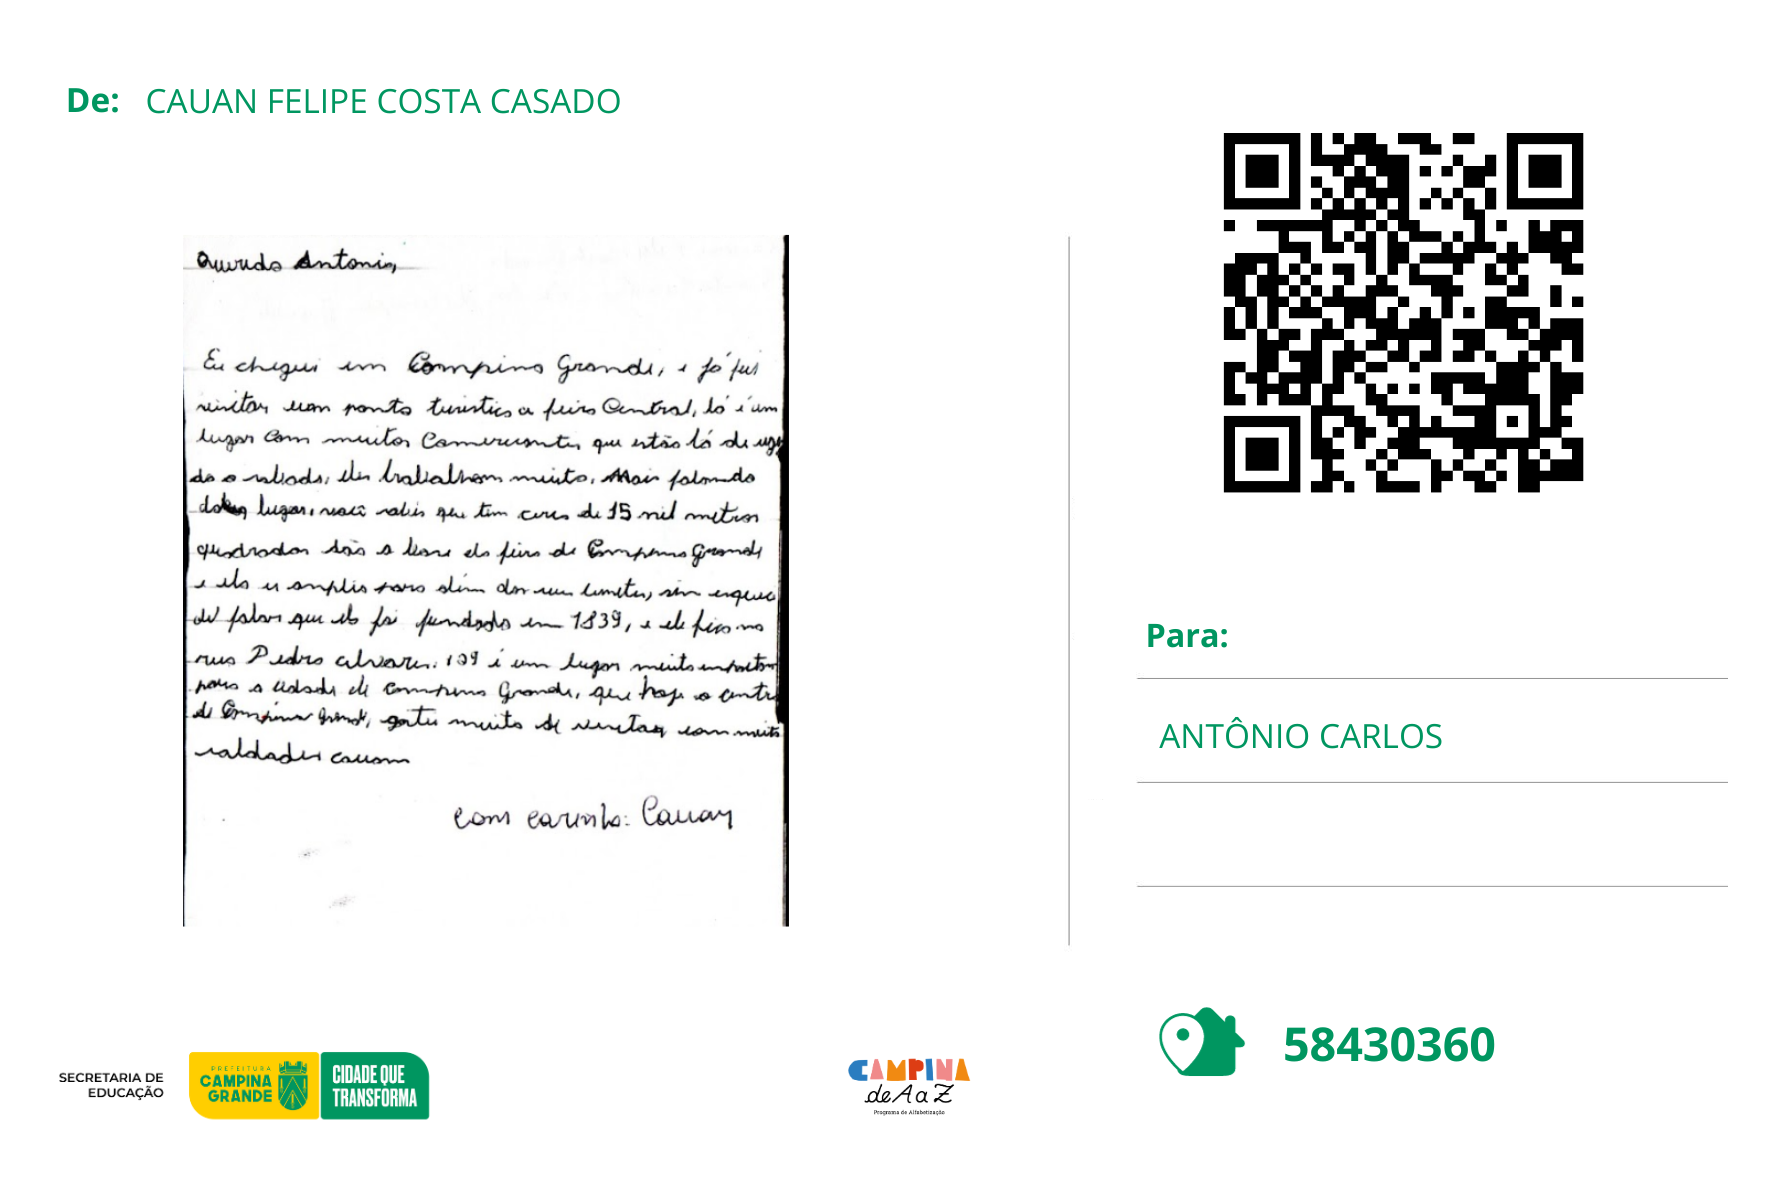 De: CAUAN FELIPE COSTA CASADO
Querido Antonio,
Eu cheguei em Campina Grande, e já fui
visitar um ponto turistico a feira Central, lá é um
lugar com muitos Comerciantes que estão lá de segu
da a sabado, eles trabalham muito, Mais falando
lugar, você sabia que tem cerca de 15 mil metros
quadrados são a base da feira de Campina Grande
e ela se amplia para além dos seus limites, sem esquec
de falar que ela foi fundada em 1839, e ele fica na
rua Pedro alvares, 109 é um lugar muito
para a cidade de campina Grande, que hoje o centro
de Campina Grande, gostei muito de visitar com muita
saldades cauam
com carinho: Cauan
Para:
ANTÔNIO CARLOS
58430360
SECRETARIA DE
EDUCAÇÃO
PREFEITURA
CAMPINA
GRANDE
CIDADE QUE
TRANSFORMA
CAMPINA
de A a Z
Programa de Alfabetização